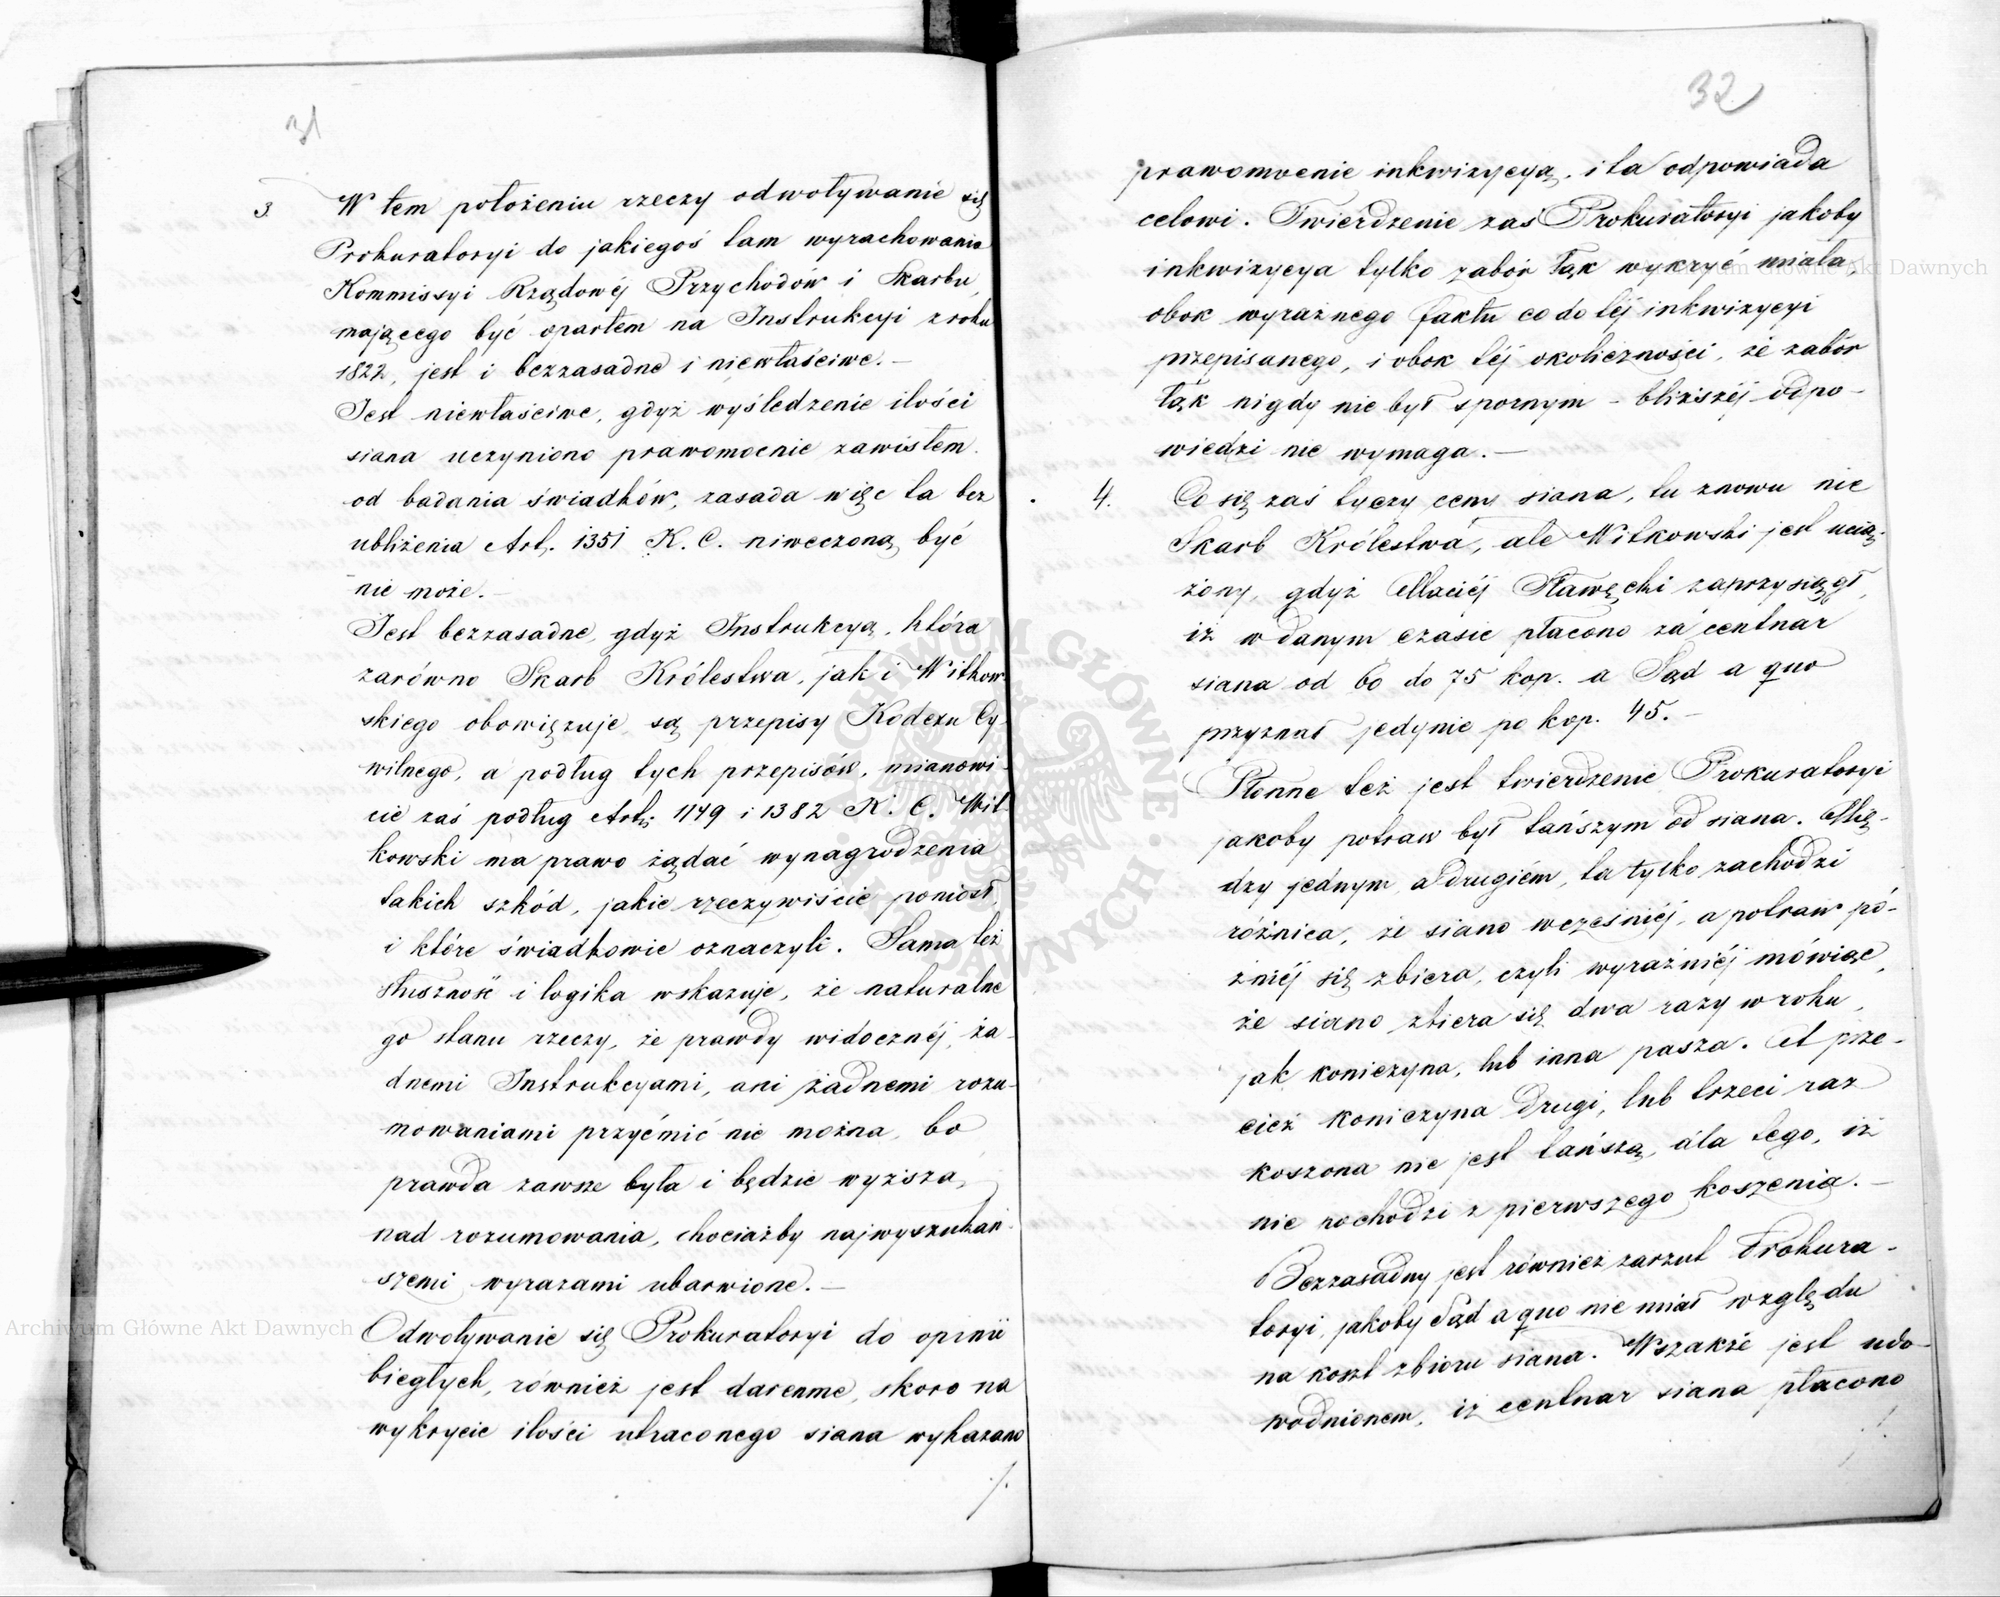 31
3. W tem położeniu rzeczy odwoływanie się
Prokuratoryi do jakiegoś tam wyrachowania
Kommissyi Rządowéj Przychodów i Skarbu,
mającego być opartem na Instrukcyi z roku
1822, jest i bezzasadne i niewłaściwe. —
Jest niewłaściwe, gdyż wyśledzenie ilości
siana uczyniono prawomocnie zawisłem
od badania świadków, zasada więc ta bez
ubliżenia Art. 1351 K. C. niweczoną być
nie może. —
Jest bezzasadne, gdyż Instrukcyą, która
zarówno Skarb Królestwa, jak i Witkow-
skiego obowięzuje, są przepisy Kodexu Cy-
wilnego, a podług tych przepisów, mianowi-
cie zaś podług Art. 1149 i 1382 K. C. Wit-
kowski ma prawo żądać wynagrodzenia
takich szkód, jakie rzeczywiście poniosł,
i które świadkowie oznaczyli. Sama też
słuszność i logika wskazuje, że naturalne
go stanu rzeczy, że prawdy widocznéj, ża-
dnemi Instrukcyami, ani żadnemi rozu-
mowaniami przyćmić nie można, bo
prawda zawsze była i będzie wyższa,
nad rozumowania, chociażby najwyszukań-
szemi wyrazami ubarwione. —
Odwoływanie się Prokuratoryi do opinii
biegłych, również jest daremne, skoro na
wykrycie ilości utraconego siana wykazano
./.
32
prawomocnie inkwizycyą, i ta odpowiada
celowi. Twierdzenie zaś Prokuratoryi jakoby
inkwizycya tylko zabór łąk wykryć miała,
obok wyraźnego faktu co do téj inkwizycyi
przepisanego, i obok téj okoliczności, że zabór
łąk nigdy nie był spornym – bliższéj odpo-
wiedzi nie wymaga. —
4. Co się zaś tyczy ceny siana, tu znowu nie
Skarb Królestwa, ale Witkowski jest ucią-
żony, gdyż Maciéj Sławęcki zaprzysiągł,
iż w danym czasie płacono za centnar
siana od 60 do 75 kop. a Sąd a quo
przyznał jedynie po kop. 45. —
Płonne też jest twierdzenie Prokuratoryi
jakoby potraw był tańszym od siana. Mię-
dzy jednym, a drugiém, ta tylko zachodzi
różnica, że siano wcześniéj, a potraw pó-
źniéj się zbiera, czyli wyraźniéj mówiąc,
że siano zbiera się dwa razy w roku,
jak koniczyna, lub inna pasza. A prze-
cież koniczyna drugi, lub trzeci raz
koszona nie jest tańszą, dla tego, iż
nie pochodzi z pierwszego koszenia. —
Bezzasadny jest również zarzut Prokura-
toryi, jakoby Sąd a quo nie miał względu
na koszt zbioru siana. Wszakże jest udo-
wodnionem, iż centnar siana płacono
./.
Archiwum Główne Akt Dawnych
Archiwum Główne Akt Dawnych
ARCHIWUM GŁÓWNE AKT DAWNYCH